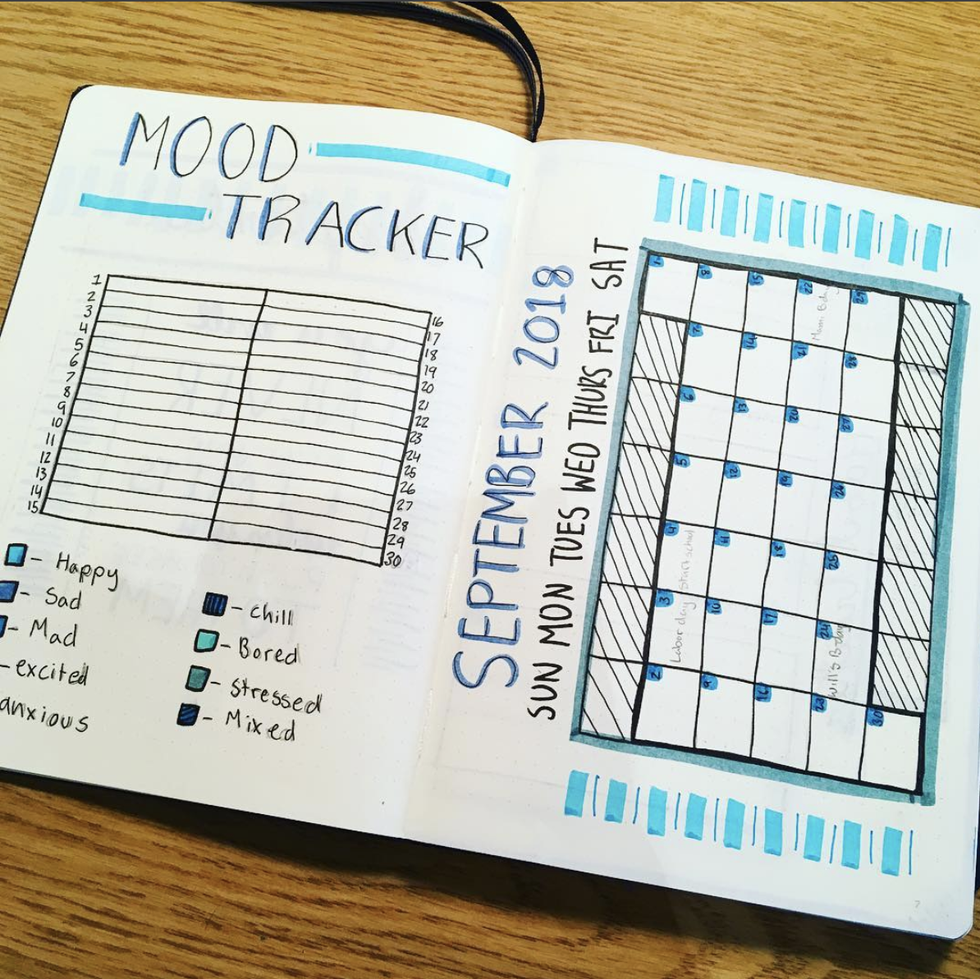 MOOD
TRACKER
1
2
3
4
5
6
7
8
9
10
11
12
13
14
15
16
17
18
19
20
21
22
23
24
25
26
27
28
29
30
- Happy
- Sad
- Mad
- excited
anxious
- chill
- Bored
- stressed
- Mixed
SEPTEMBER 2018
SUN MON TUES WED THURS FRI SAT
1
2 3 4 5 6 7 8
Labor day start school
9 10 11 12 13 14 15
16 17 18 19 20 21 22
23 24 25 26 27 28 29
Will's B-day
30
7